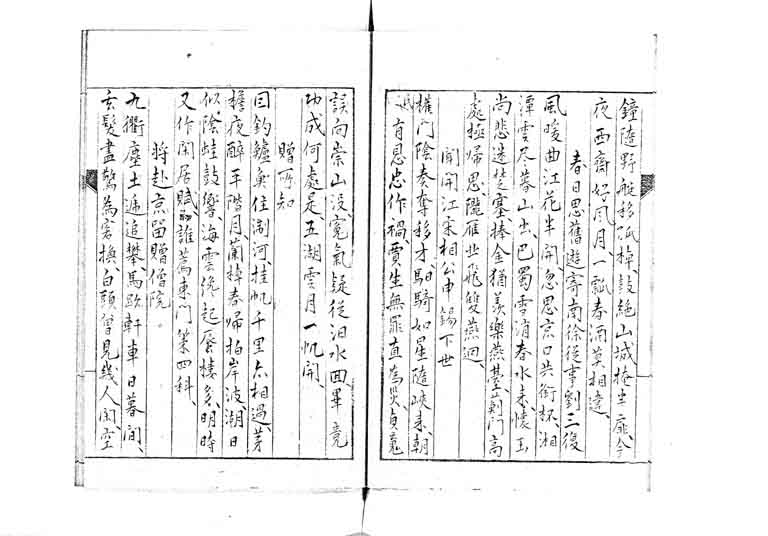 鐘隨野艇移孤棹、鼓絶山城掩半扉、今
夜西齋好風月、一瓢春酒莫相違、
春日思舊遊寄南徐從事劉三復
風暖曲江花半開、忽思京口共銜杯、湘
潭雲尽暮山出、巴蜀雪消春水來、懷玉
尚悲迷楚塞、捧金猶羡樂燕臺、薊門高
處極歸思、隴雁北飛雙燕迴、
聞開江宋相公申錫下世
權門陰奏奪移才、馹騎如星隨峽來、朝
有恩忠作禍、賈生無罪直為災、貞魂
誤向崇山没、寃氣疑從汨水回、畢竟
功成何處是、五湖雲月一帆開、
贈所知
因釣鱸魚住淛河、挂帆千里亦相過、茅
檐夜醉平階月、蘭棹春歸拍岸波、湖日
似陰蛙鼓響、海雲纔起蜃樓多、明時
又作閑居賦、誰薦東門第四科、
將赴京留贈僧院。
九衢塵土遞追攀、馬跡軒車日暮間、
玄髮盡驚為客換、白頭曾見幾人閑、空